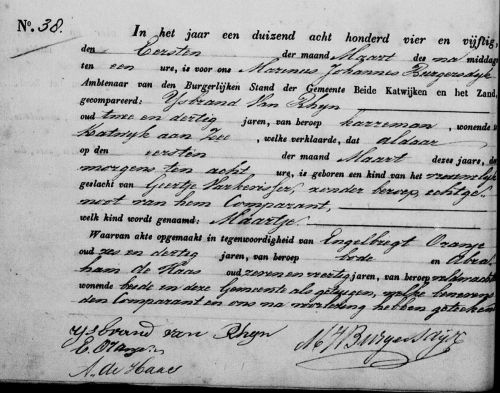 No. 38.
In het jaar een duizend acht honderd vier en vijftig,
den Eersten der maand Maart des na middags
ten een ure, is voor ons Marinus Johannes Burgersdijk
Ambtenaar van den Burgerlijken Stand der Gemeente Beide Katwijken en het Zand,
gecompareerd: Ysbrand van Rhyn
oud twee en dertig jaren, van beroep karreman, wonende te
Katwyk aan Zee, welke verklaarde, dat aldaar
op den eersten der maand Maart dezes jaars, des
morgens ten acht ure, is geboren een kind van het vrouwelyk
geslacht van Geertje Varkevisser, zonder beroep, echtge-
noot van hem Comparant,
welk kind wordt genaamd: Maartje.
Waarvan akte opgemaakt in tegenwoordigheid van Engelbregt Oranje
oud zes en dertig jaren, van beroep bode en Abra-
ham de Haas oud zeven en veertig jaren, van beroep
wonende beide in deze Gemeente als getuigen, welke benevens
den Comparant en ons na voorlezing hebben geteekend
Ysbrand van Rhyn
E. Oranje
A. de Haas
M J Burgersdijk